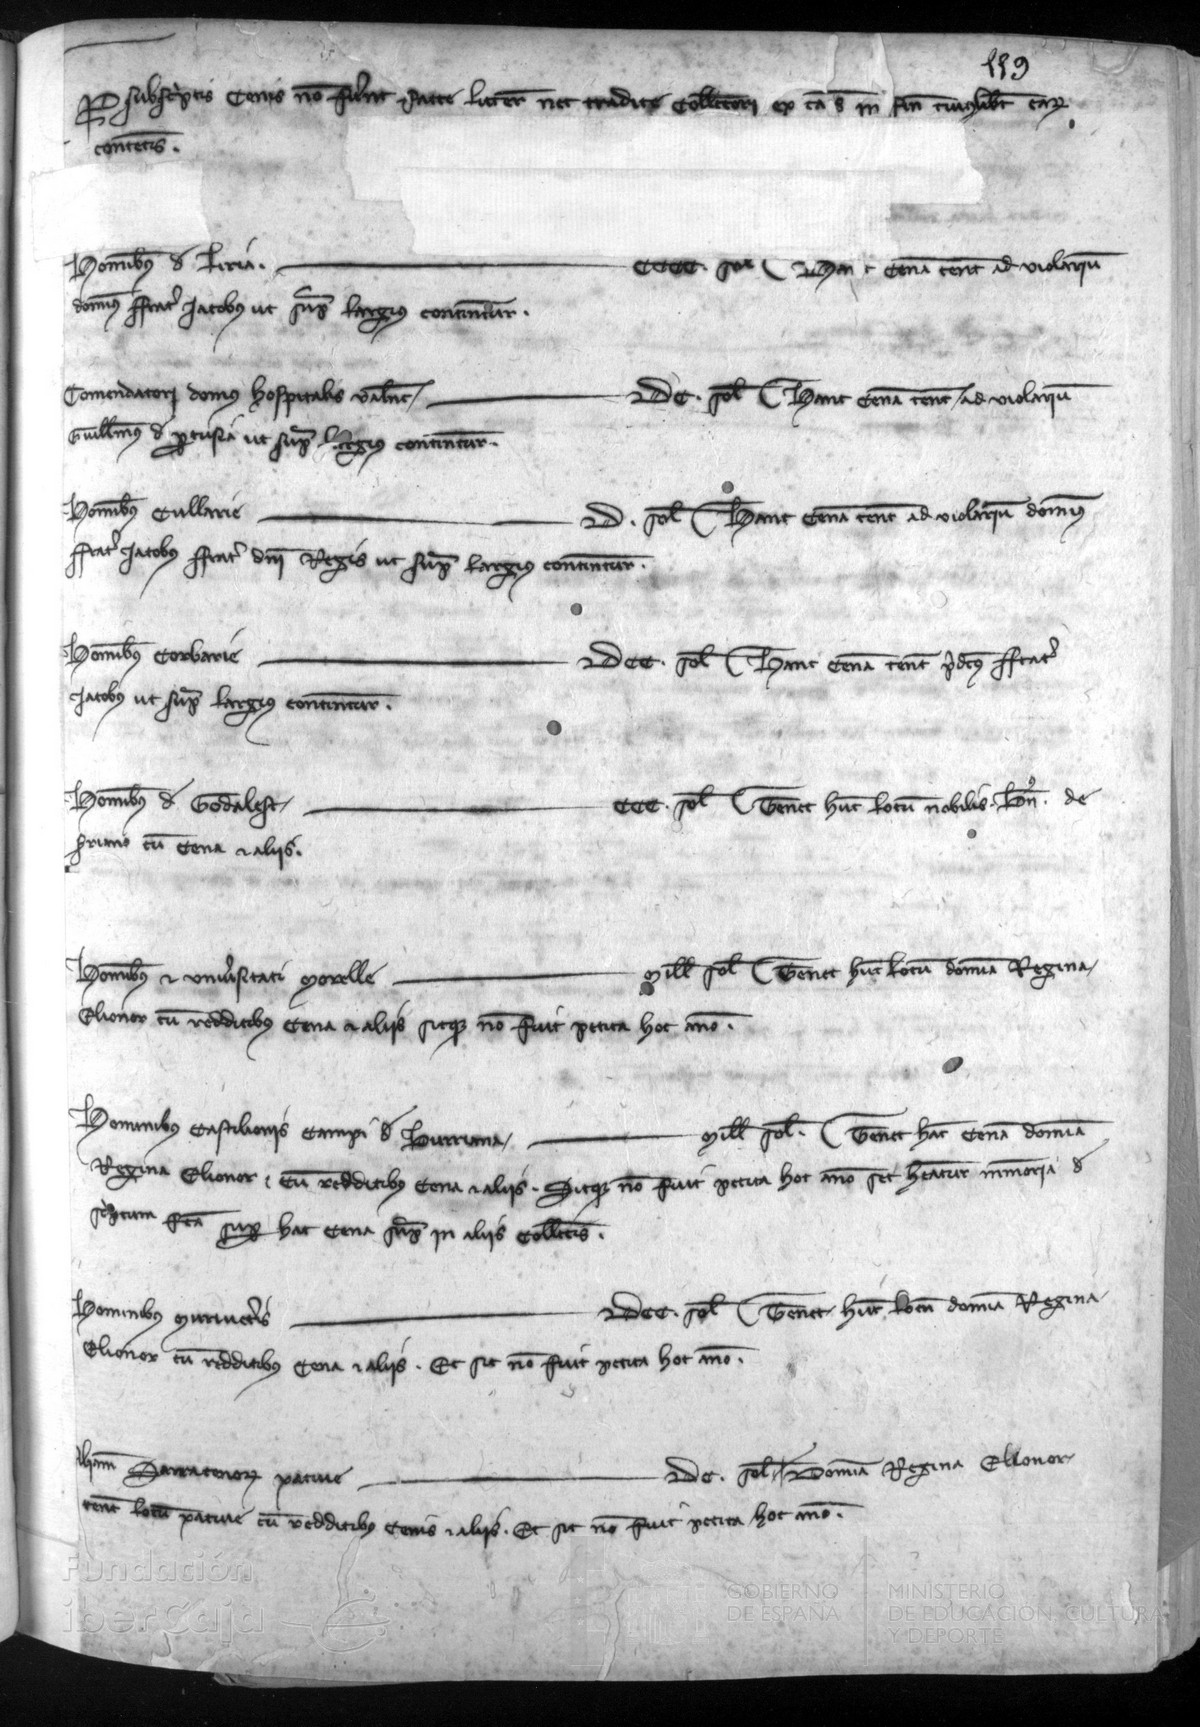 119
P subscriptis Cenis no fuert facte littere nec tradite Collectori ex ca s in fin cuiuslibet earum
contentis.
Hominibus de Liria. CCCC. sol Hanc Cena tenet ad violarium
domnus ffrater Jacobus ut supra largius continetur.
Comendatori domus hospitalis valencie DC. sol Hanc Cena tenet ad violarium
Guillmus de ut supra largius continetur.
Hominibus Cullarie D. sol Hanc Cena tenet ad violarium domnus
ffrater Jacobus ffrater dni Regis ut supra largius continetur.
Hominibus Corbarie DCC. sol Hanc Cena tenet pdcus ffrater
Jacobus ut supra largius continetur.
Hominibus de Godalest CCC. sol Tenet hunc locum nobilis. Bn. de
cum Cena et aliis.
Hominibus et universitati Morelle Mille sol Tenet hunc locum domina Regina
Elionor cum redditibus Cena et aliis sicque no fuit petita hoc anno.
Hominibus Castilionis Campi de Burriana Mille sol. Tenet hanc Cena domina
Regina Elionor cum redditibus Cena et aliis. Sicque no fuit petita hoc anno set heatur memoria de
scriptura fca super hac Cena supra in aliis Collectis.
Hominibus Muriveteris DCC. sol Tenet hunc locum domina Regina
Elionor cum redditibus Cena et aliis. Et sic no fuit petita hoc anno.
Aliame Sarracenorum Xative DC. sol Domina Regina Elionor
tenet locum Xative cum redditibus Cenis et aliis. Et sic no fuit petita hoc anno.
Fundación
iberCaja
GOBIERNO
DE ESPAÑA
MINISTERIO
DE EDUCACIÓN, CULTURA
Y DEPORTE